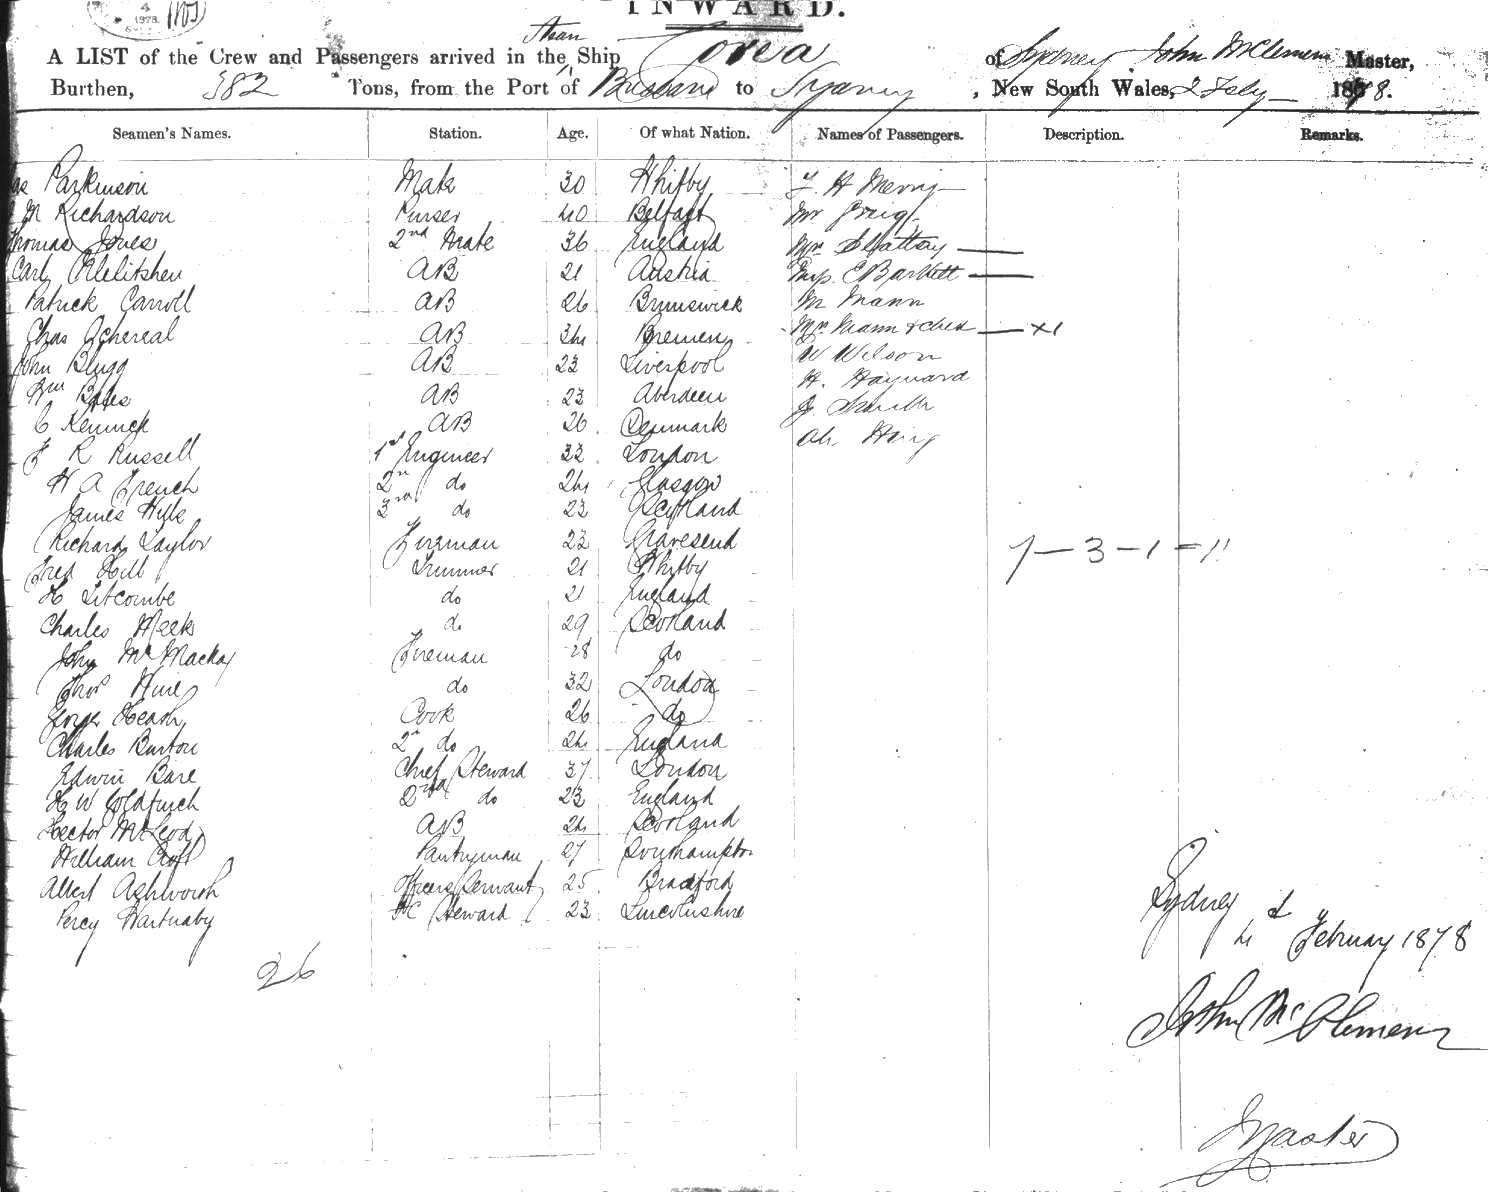 INWARD.
A LIST of the Crew and Passengers arrived in the Steam Ship Corea of Sydney John McClemens Master,
Burthen, 382 Tons, from the Port of Brisbane to Sydney, New South Wales, 2 Feby 1878.
Seamen's Names. Station. Age. Of what Nation. Names of Passengers. Description. Remarks.
Parkinson Mate 30 Whitby
Richardson Purser 40 Belfast Mr Greig
Thomas Jones 2nd Mate 36 England Mr Slattery
Carl AB 21 Austria Miss E Bartlett
Patrick Carroll AB 26 Brunswick Mr Mann
Chas Achereal AB 24 Bremen Mrs Mann & child X1
John Blugg AB 23 Liverpool W Wilson
Wm Bates AB 23 Aberdeen H. Hayward
C Kennick AB 26 Denmark J. Smith
F R Russell 1st Engineer 32 London Ah. Hing
H A French 2nd do 24 Glasgow
James Hyle 3rd do 23 Scotland
Richard Taylor Fireman 22 Gravesend 7-3-1=11
Fred Hill Trimmer 21 Whitby
H Titcombe do 21 England
Charles Meek do 29 Scotland
John McMackay Fireman 28 do
Thos Hine do 32 London
George Heash Cook 26 do
Charles Burton 2nd do 24 England
Edwin Bare Chief Steward 37 London
H W Goldfinch 2nd do 23 England
Hector McLeod AB 24 Scotland
William Croft Pantryman 27 Southampton
Albert Ashworth Officers Servant 25 Bradford
Percy Wartnaby FC Steward 23 Lincolnshire
26
Sydney
4 February 1878
John McClemens
Master